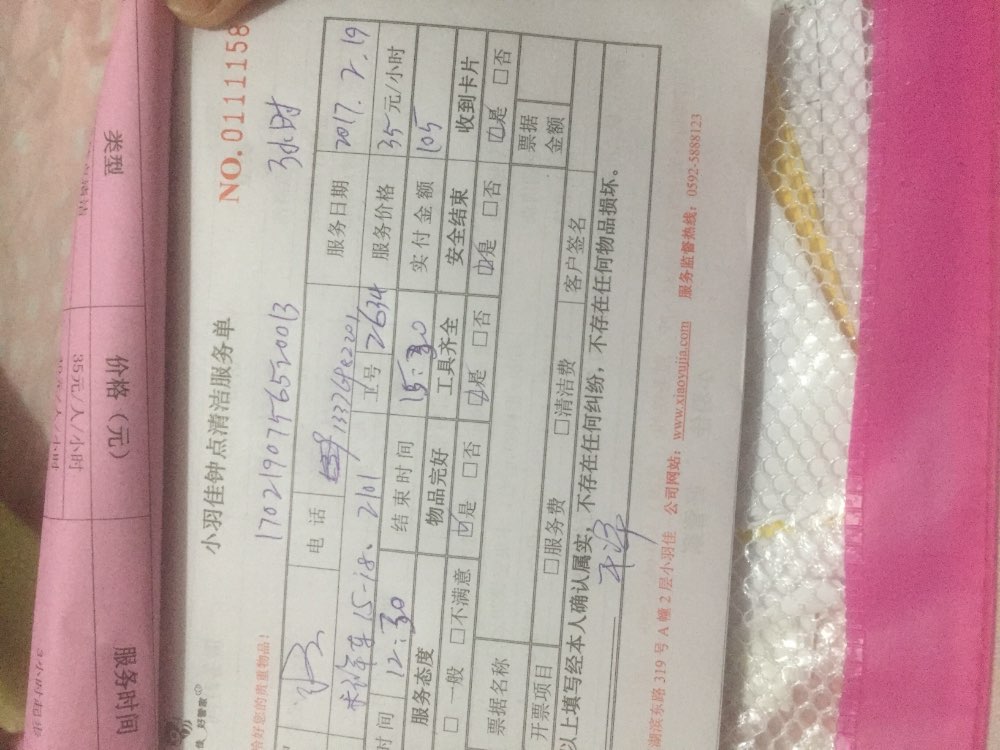 NO.0111158
小羽佳钟点清洁服务单
3小时
恰好您的贵重物品!
电话
服务日期 2017.2.19
15-18、2101 工号 2634 服务价格 35元/小时
时间 12:30 结束时间 15:30 实付金额 105
服务态度 物品完好 工具齐全 安全结束 收到卡片
□一般 □不满意 ☑是 □否 ☑是 □否 ☑是 □否 ☑是 □否
票据名称 票据金额
开票项目 □服务费 □清洁费 客户签名
以上填写经本人确认属实,不存在任何纠纷,不存在任何物品损坏。
湖滨东路 319 号 A 幢 2 层小羽佳 公司网站:www.xiaoyujia.com 服务监督热线:0592-5888123
服务时间 价格(元) 类型
35元/人/小时